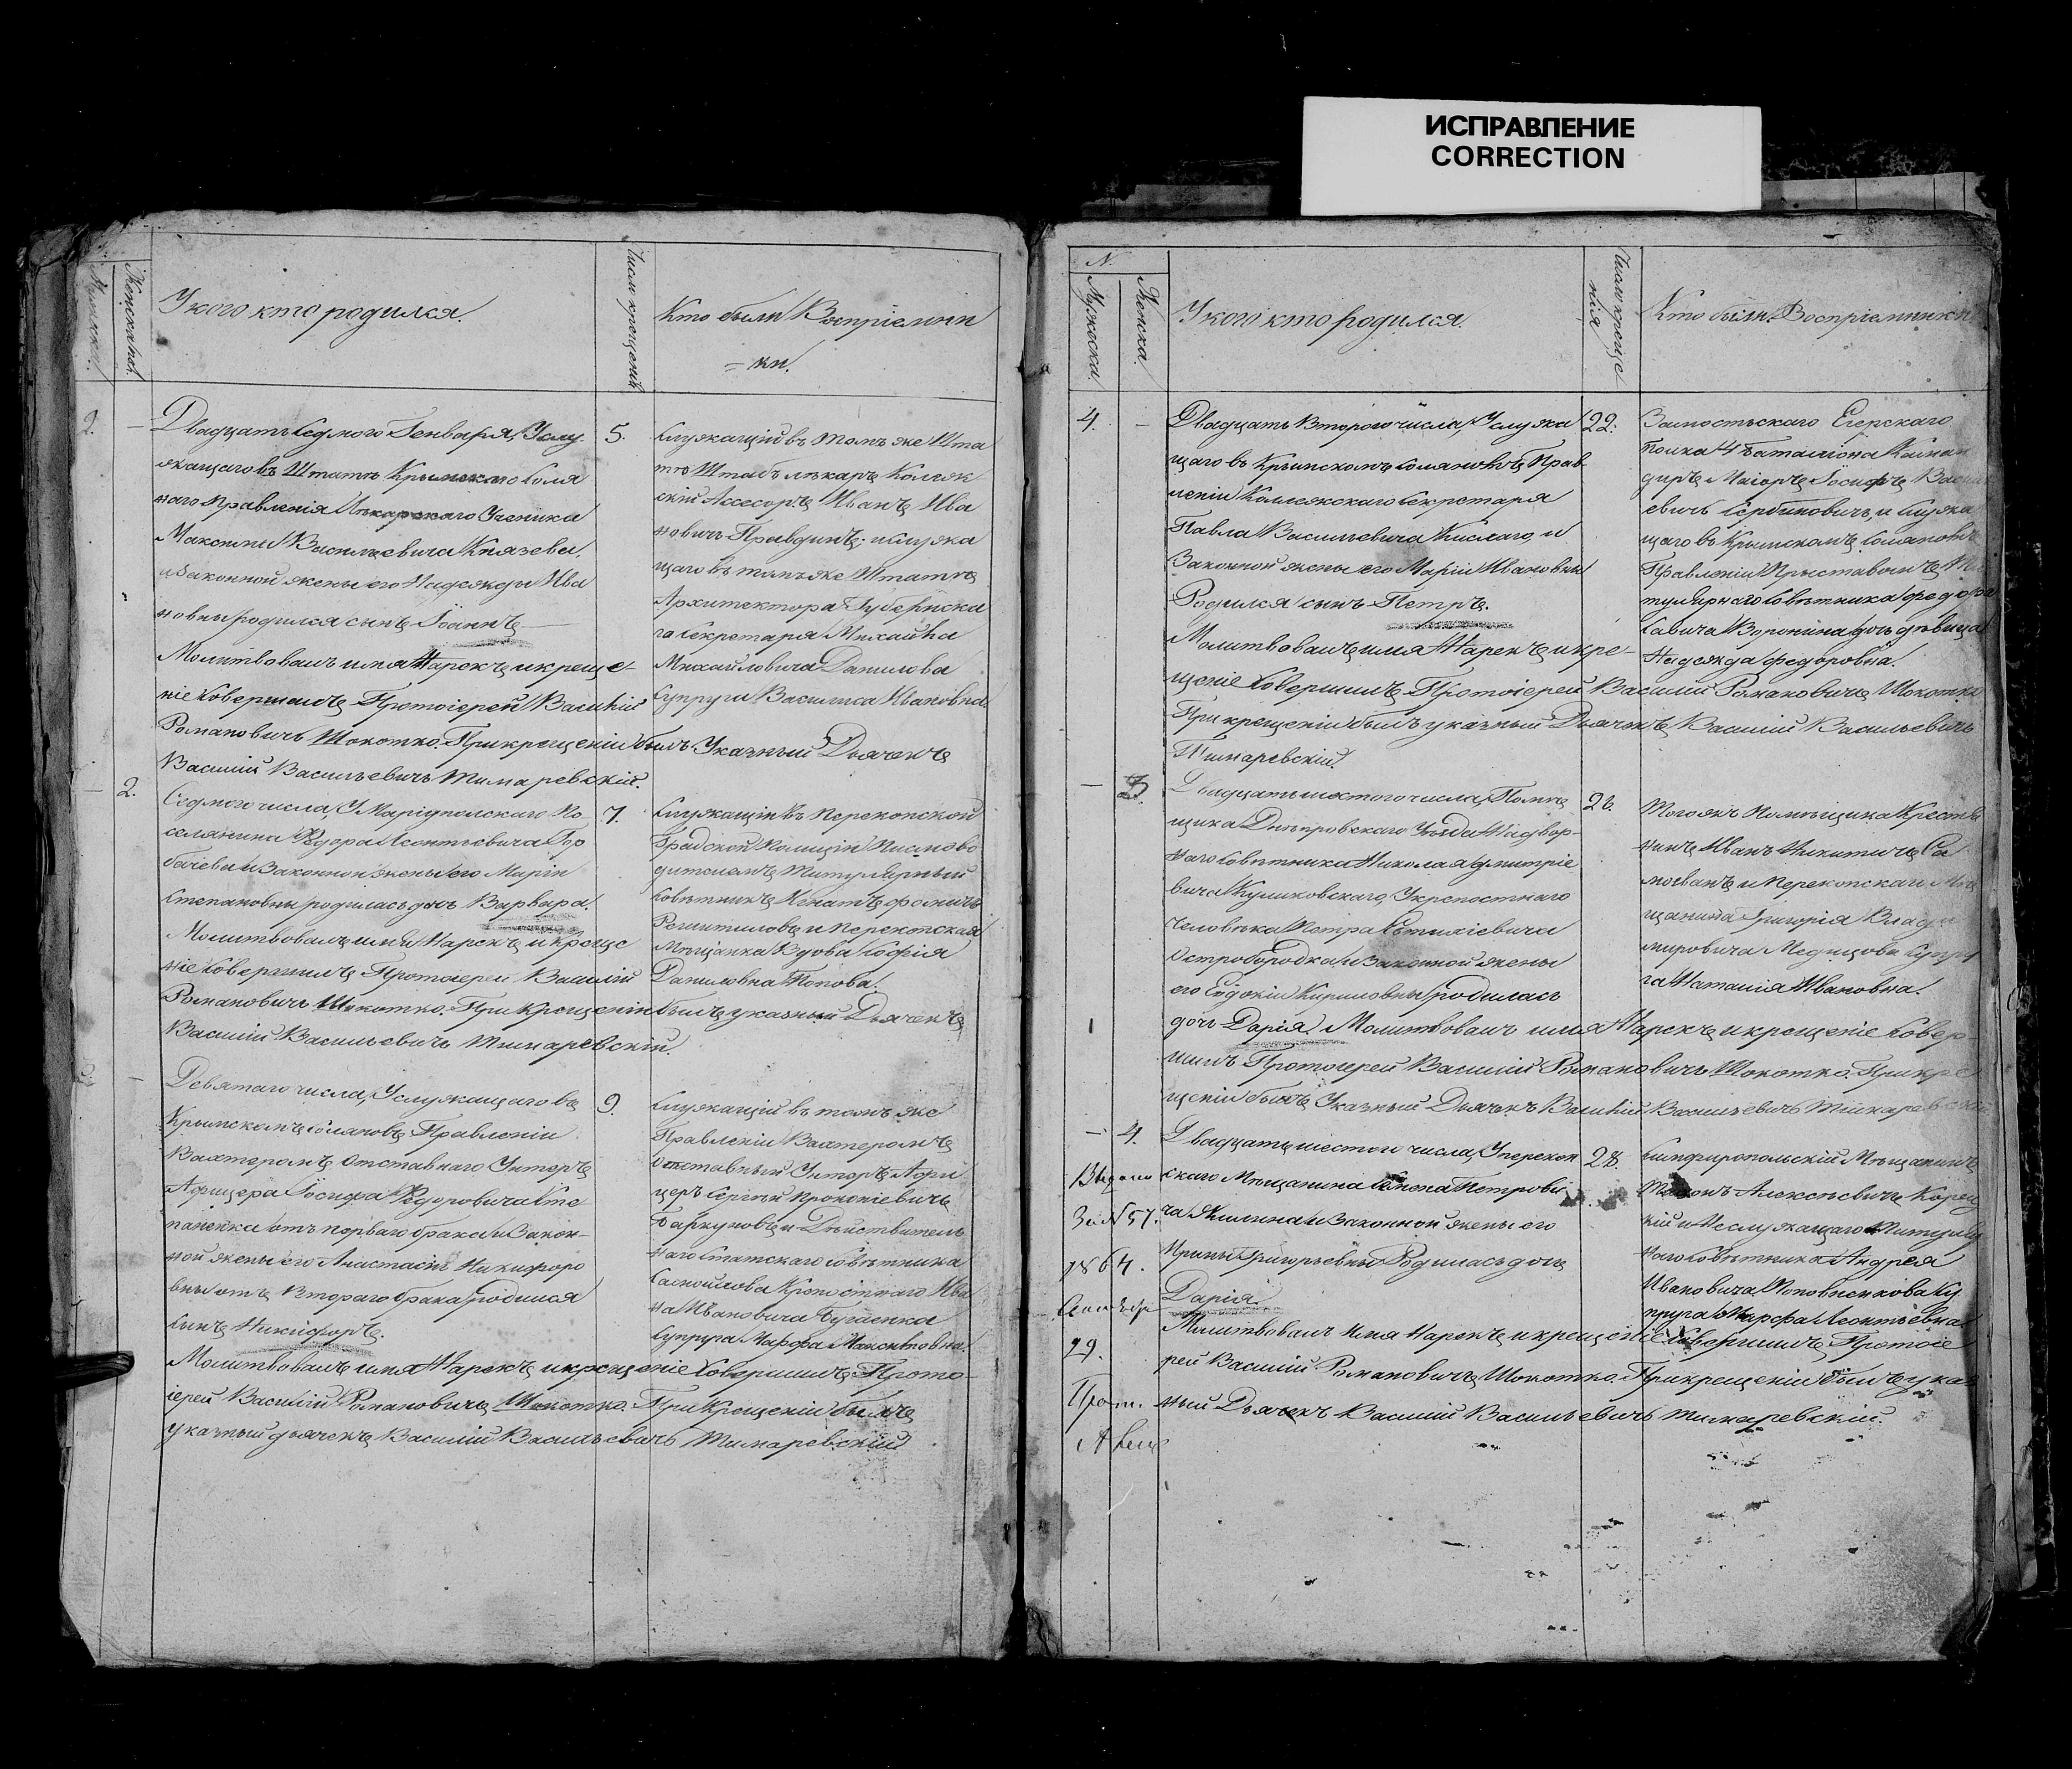 ИСПРАВЛЕНИЕ
CORRECTION
Женска пол.
У кого кто родился.
Число крещенія
Кто были Воспріемни
= ки.
2.
Двадцать Седмого Генваря, У слу
жащаго въ Штатѣ Крымского Соля
наго Правленія Лѣкарского Ученика
Максима Васильевича Князева,
и Законной жены его Надежды Ива
новны родился сынъ Іоаннъ
Молитвовалъ имя Нарекъ и креще
ніе Совершилъ Протоіерей Василій
Романовичъ Шокотко. При крещеніи былъ Указный Дьячекъ
Василій Васильевичъ Тимаревскій.
5.
Служащій въ томъ же Шта
тѣ Штабъ лѣкарь Колеж
скій Ассесоръ Иванъ Ива
новичъ Правдинъ; и служа
щаго въ томъ же Штатѣ
Архитектора Губернска
го Секретаря Михаила
Михайловича Данилова
Супруга Василиса Ивановна
2.
Седмого числа, У Маріупольского По
селянина Федора Леонтьевича Гор
бачева и Законной жены его Маріи
Степановны родилась дочь Варвара.
Молитвовалъ имя Нарекъ и креще
ніе Совершилъ Протоіерей Василій
Романовичъ Шокотко. При Крещеніи былъ указный Дьячекъ
Василій Васильевичъ Тимаревскій.
7.
Служащій въ Перекопской
Градской Полиціи Письмово
дителемъ Титулярный
Совѣтникъ Игнатъ Фомичъ
и Перекопская
Мѣщанка Вдова Софія
Даниловна Попова.
Девятаго числа, У служащаго въ
Крымскомъ Соляновъ Правленіи
Вахтеромъ Отставнаго Унтеръ
Афицера Іосифа Федоровича Сте
паненка отъ перваго брака и Закон-
ной жены его Анастасіи Никифоро
вны отъ Втораго брака родился
Сынъ Никифоръ.
Молитвовалъ имя Нарекъ и крещеніе Совершилъ Прото
іерей Василій Романовичъ Шокотко. При Крещеніи былъ
указный дьячекъ Василій Васильевичъ Тимаревскій
9.
Служащій въ томъ же
Правленіи Вахтеромъ
Отставный Унтеръ Афи
церъ Сергѣй Прокопіевичъ
и Дѣйствитель
наго Статского Совѣтника
Самойлова Крепостнаго Ива
на Ивановича Бугаенка
Супруга Марфа
N.
Мужеска.
Женска.
У кого кто родился.
Число креще
нія
Кто были Воспріемники
4.
Двадцать Второго числа, У служа
щаго въ Крымскомъ Соляновъ Прав-
леніи Коллежского Секретаря
Павла Васильевича Кислаго, и
Законной жены его Маріи Ивановны
Родился сынъ Петръ.
Молитвовалъ имя Нарекъ и кре-
щеніе Совершилъ Протоіерей Василій Романовичъ Шокотко
При крещеніи былъ указный Дьячекъ Василій Васильевичъ
Тимаревскій.
22.
Замостьского Егерского
Полка 4 Баталіона Коман
диръ Маіоръ Іосифъ Васил
евичъ Сербиновичъ, и Служа
щаго въ Крымскомъ Соляновъ
Правленіи Приставомъ Ти
тулярнаго Совѣтника Федора
Савича Воронина дочь дѣвица
Надежда Федоровна.
3.
Двадцать шестого числа, Помѣ
щика Днѣпровского Уѣзда Надвор-
наго Совѣтника Николая Дмитріе
вича Куликовского, У крепостнаго
Человѣка Петра
Остробородка и Законной жены
его Евдокіи Кириловны родилась
дочь Дарія. Молитвовалъ имя Нарекъ и крещеніе Совер
шилъ Протоіерей Василій Романовичъ Шокотко. При кре
щеніи былъ Указный Дьячекъ Василій Васильевичъ Тимаревскій
26.
Того жъ Помѣщика Крестья
нинъ Иванъ Никитичъ Са
мованъ и Перекопскаго Мѣ
щанина Григорія Влади
мировича Медицова Супру
га Наталія Ивановна.
4.
Двадцать шестого числа, У перекоп
ского Мѣщанина Семена Петрови
ча Жилина и Законной жены его
Ирины Григорьевны Родилась дочь
Дарія.
Молитвовалъ Имя Нарекъ и крещеніе Совершилъ Протоіе
рей Василій Романовичъ Шокотко. При крещеніи былъ указ
ный Дьячекъ Василій Васильевичъ Тимаревскій.
28.
Симфиропольскій Мѣщанинъ
Алексѣевичъ
кій и Неслужащаго Титуляр
наго Совѣтника Андрея
Ивановича Су
пруга Марфа Леонтьевна
За N 57.
1864.
29.